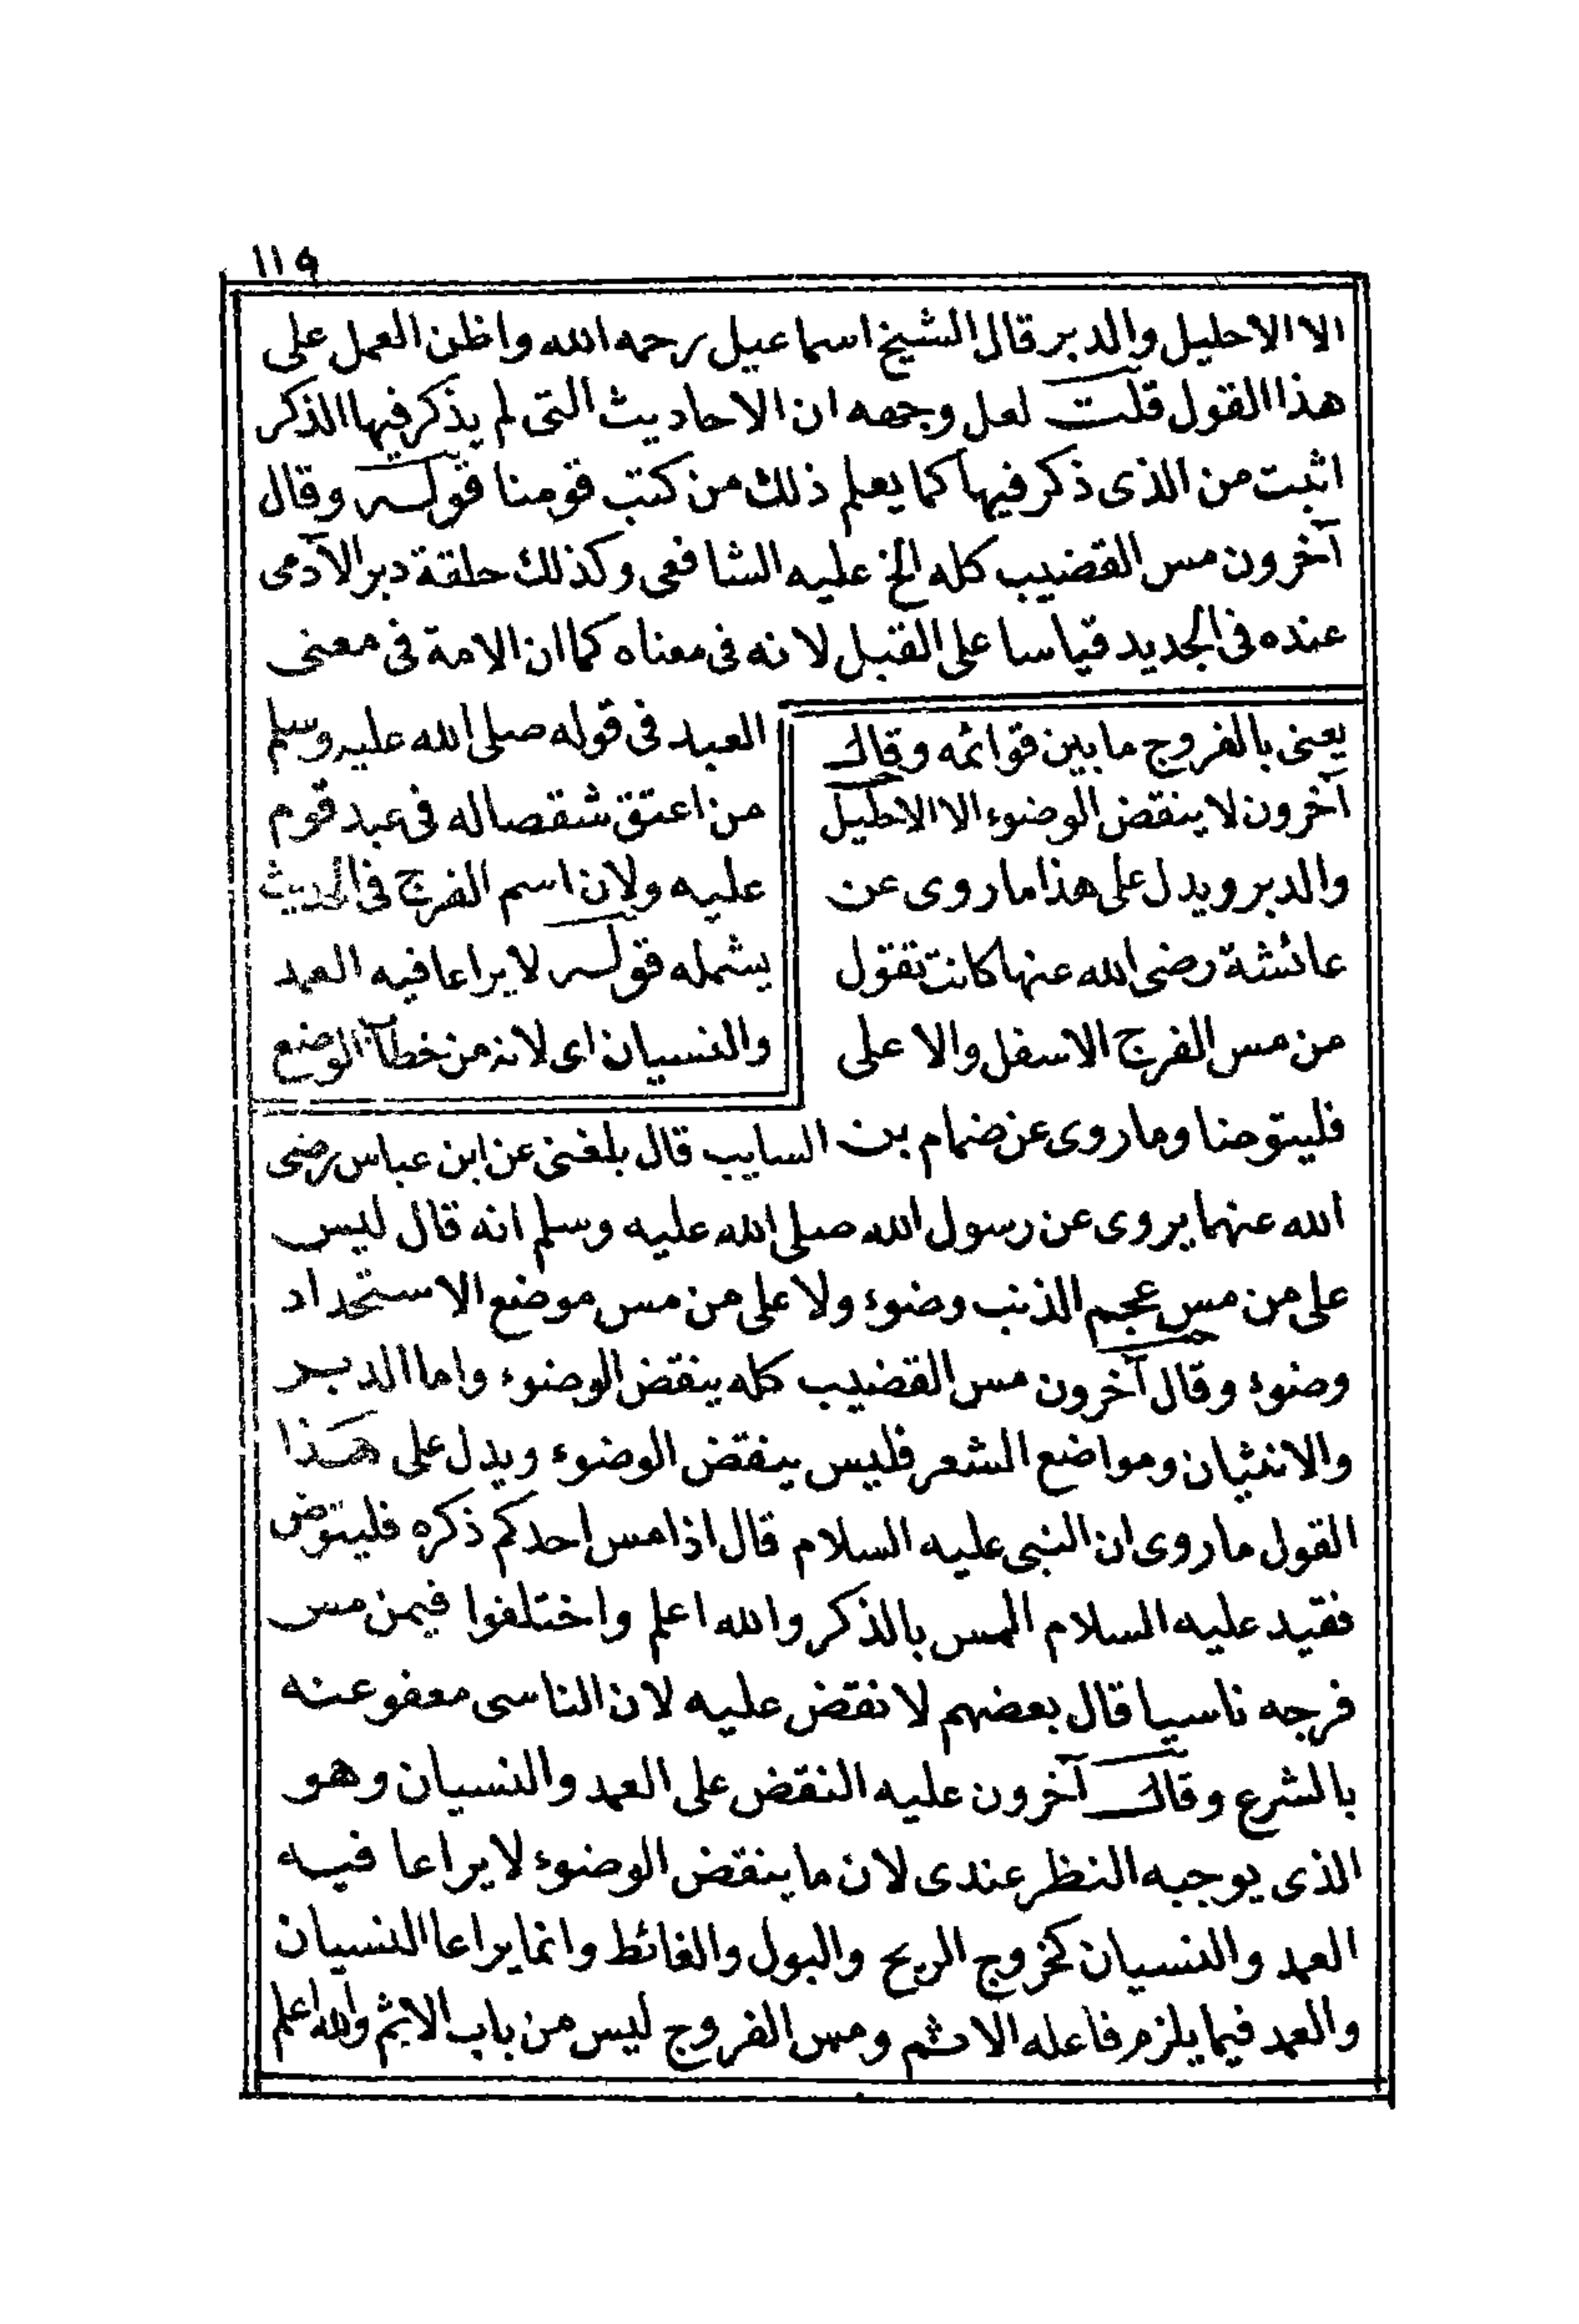 ١١٩
الا الاحليل والدبر قال الشيخ اسماعيل رحمه الله واظن العمل على
هذا القول قلت لعل وجهه ان الاحاديث التى لم يذكر فيها الذكر
اثبت من الذى ذكر فيها كما يعلم ذلك من كتب قومنا قوله وقال
آخرون مس القضيب كله الخ عليه الشافعى وكذلك حلقة دبر الآدمى
عنده فى الجديد قياسا على القبل لانه فى معناه كما ان الامة فى معنى
العبد فى قوله صلى الله عليه وسلم
من اعتق شقصا له فى عبد قوم
عليه ولان اسم الفرج فى الحديث
يشمله قوله لا يراعا فيه العمد
والنسيان اى لانه من خطآ الوضع
يعنى بالفروج ما بين قوائمه وقال
آخرون لا ينقض الوضوء الا الاحليل
والدبر ويدل على هذا ما روى عن
عائشة رضى الله عنها كانت تقول
من مس الفرج الاسفل والاعلى
فليتوضا وما روى عن ضمام بن السايب قال بلغنى عن ابن عباس رضى
الله عنهما يروى عن رسول الله صلى الله عليه وسلم انه قال ليس
على من مس عجم الذنب وضوء ولا على من مس موضع الاستحداد
وضوء وقال آخرون مس القضيب كله ينقض الوضوء واما الدبر
والانثيان ومواضع الشعر فليس ينقض الوضوء ويدل على هذا
القول ما روى ان النبى عليه السلام قال اذا مس احدكم ذكره فليتوض
فقيد عليه السلام المس بالذكر والله اعلم واختلفوا فيمن مس
فرجه ناسيا قال بعضهم لا نقض عليه لان الناسى معفو عنه
بالشرع وقال آخرون عليه النقض على العمد والنسيان وهو
الذى يوجبه النظر عندى لان ما ينقض الوضوء لا يراعا فيه
العمد والنسيان كخروج الريح والبول والغائط وانما يراعا النسيان
والعمد فيما يلزم فاعله الاثم ومس الفروج ليس من باب الاثم والله اعلم